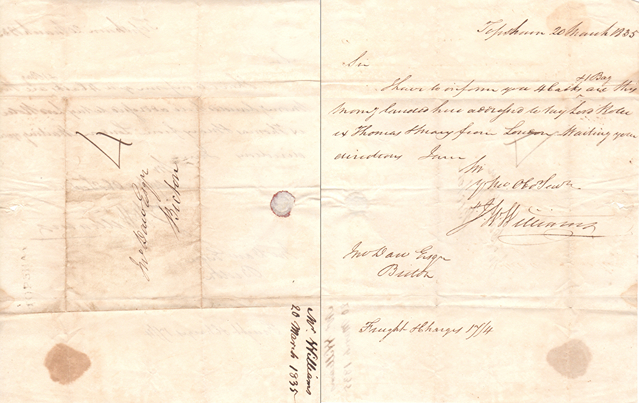 Topsham 20 March 1835
Sir
I have to inform you 4 Casks & 1 Bag are this
morng landed here addressed to Lord Rolle
ex Thomas & Mary from London Waiting your
directions I am
Sir
Yr Mo Obd Servt
J W Williams
Jno Daw Esqr
Bicton
Freight & Charges 17/4
4
Jno Daw Esqr
Bicton
Mr Williams
20 March 1835